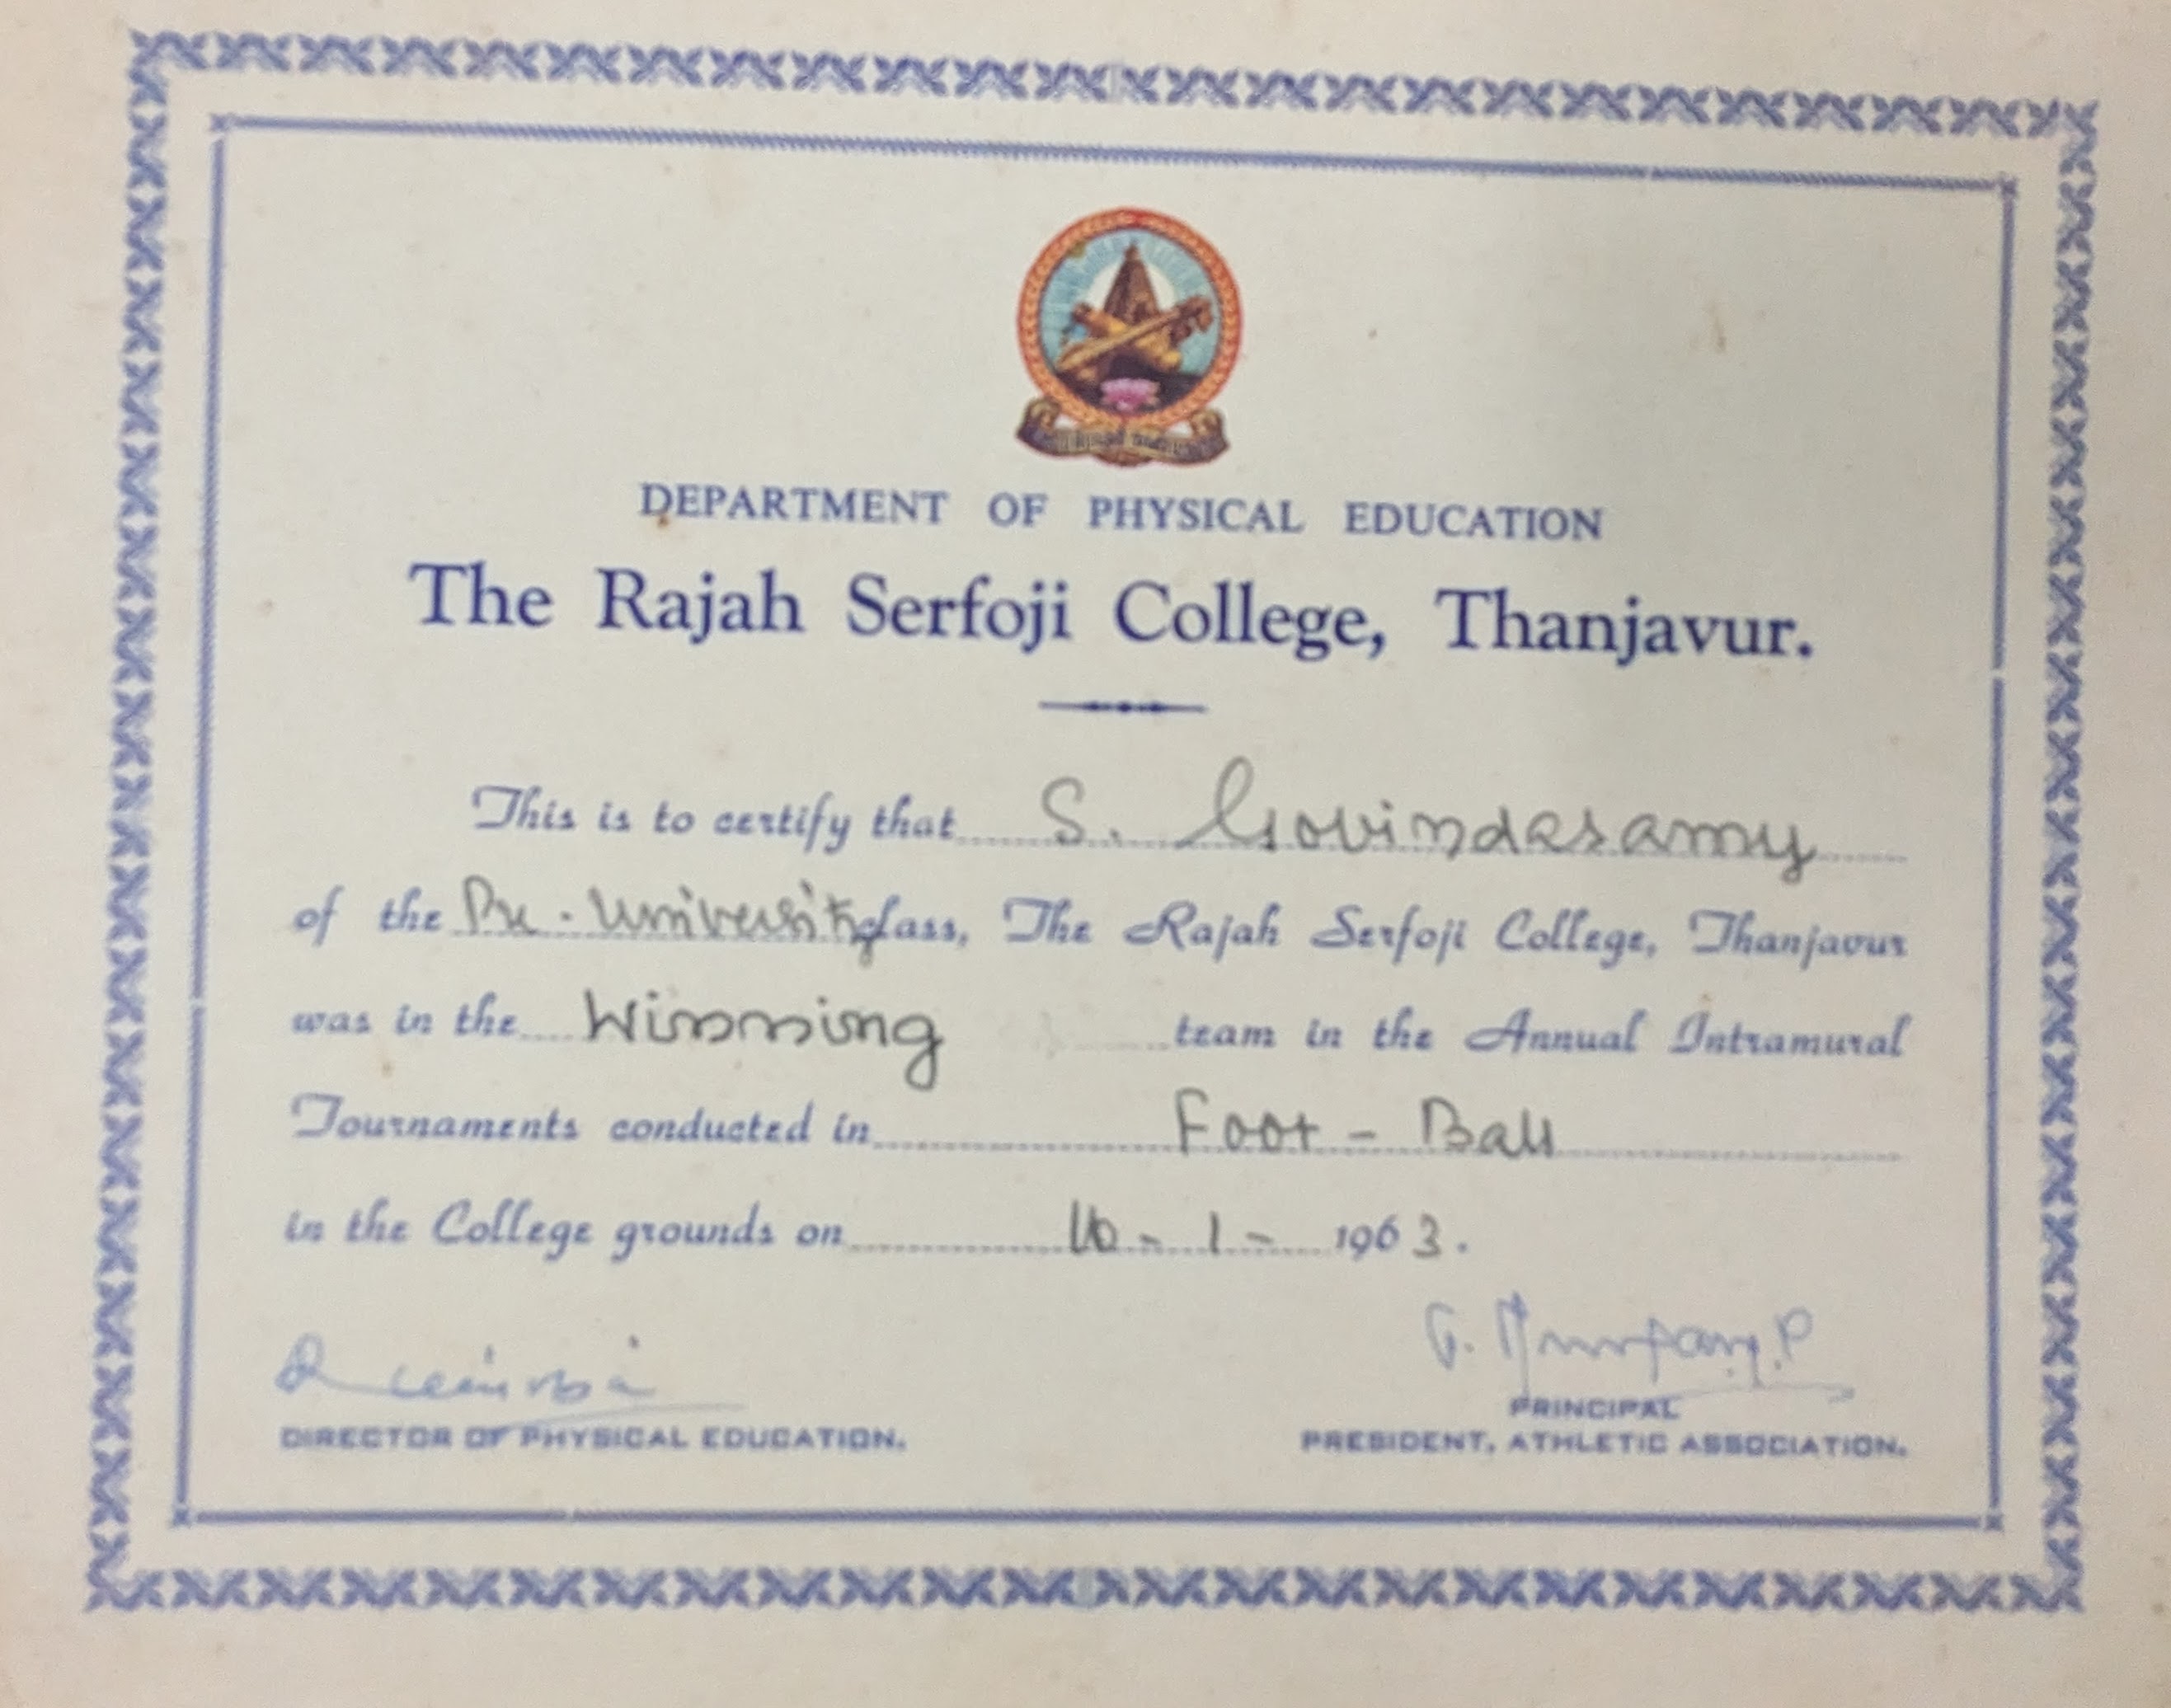 DEPARTMENT OF PHYSICAL EDUCATION
The Rajah Serfoji College, Thanjavur.
This is to certify that S. Govindasamy
of the Pre-University class, The Rajah Serfoji College, Thanjavur
was in the Winning team in the Annual Intramural
Tournaments conducted in Foot-Ball
in the College grounds on 16-1-1963.
DIRECTOR OF PHYSICAL EDUCATION.
PRINCIPAL
PRESIDENT, ATHLETIC ASSOCIATION.